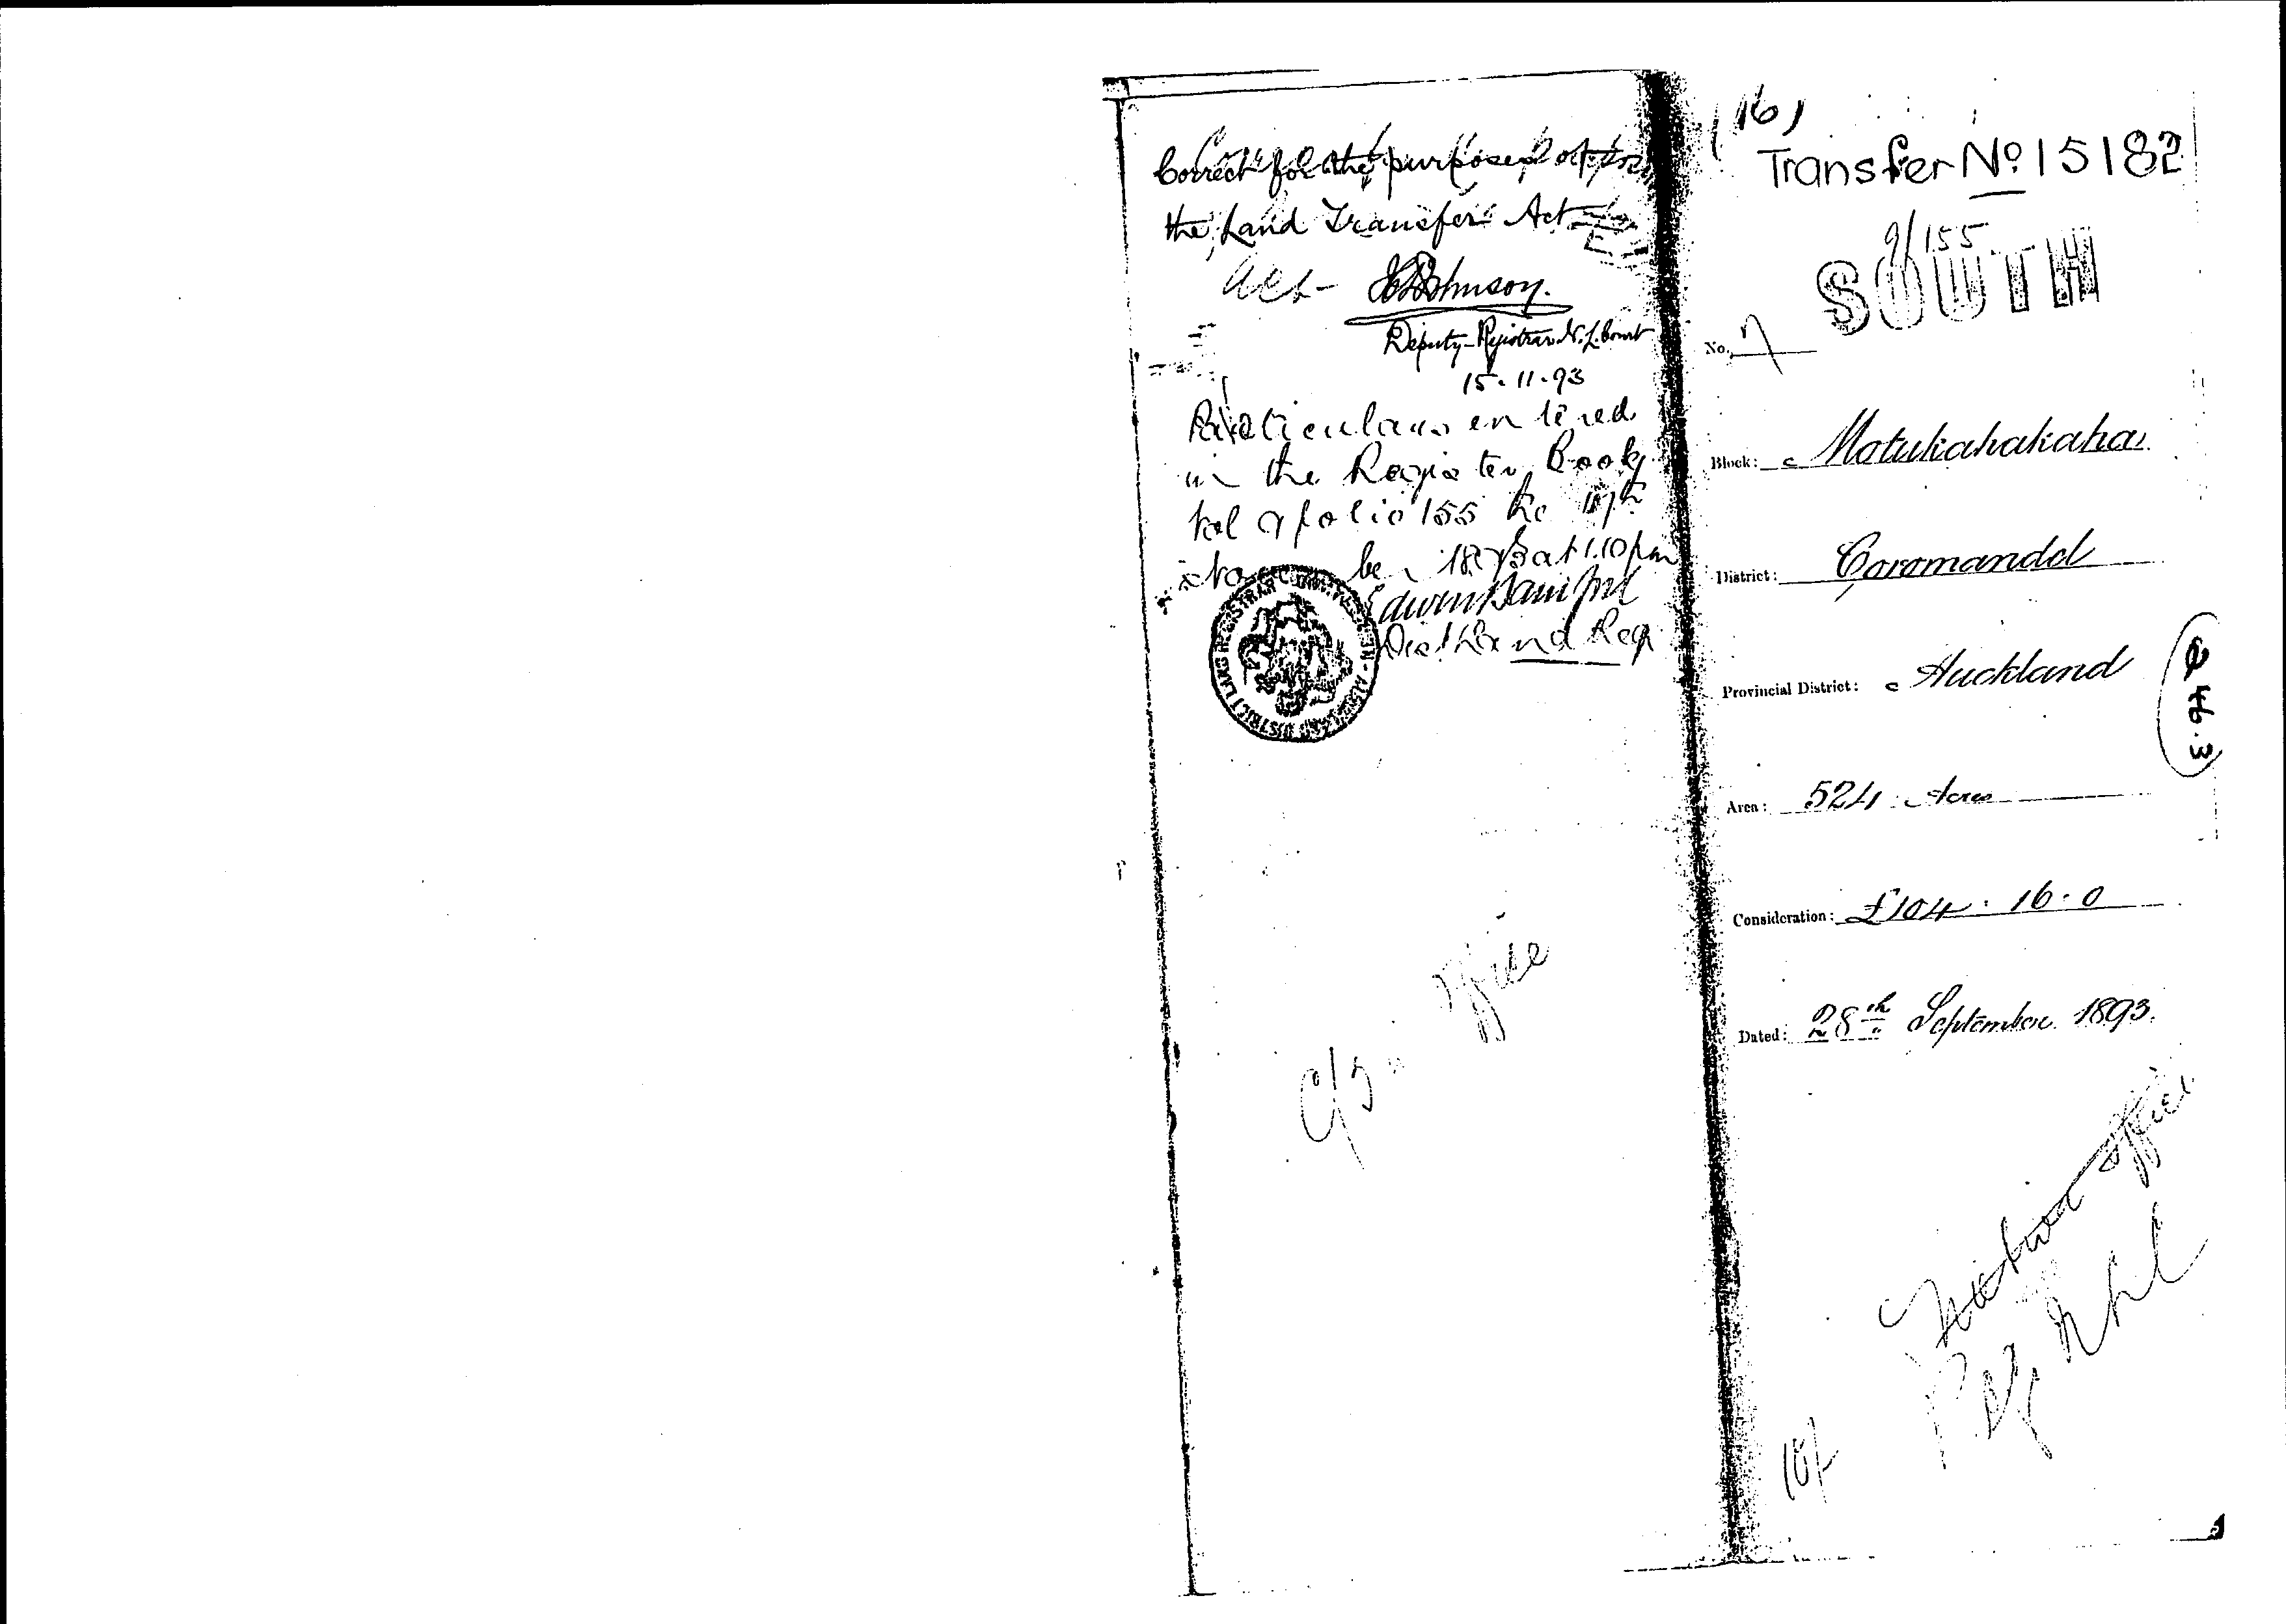 Correct for the purposes of
the Land Transfer Act
Act
Johnson.
Deputy-Registrar N.L. Court
15.11.93
Particulars entered
in the Register Book
Vol 9 folio 155 the
at 1.10 pm
Edwin Bamford
Dist Land Reg
DISTRICT LAND REGISTRAR
c/s office
(16)
Transfer No. 15182
9/155
SOUTH
No. 7
Block: Motukahakaha
District: Coromandel
Provincial District: Auckland
246.3
Area: 524 Acres
Consideration: £104.16.0
Dated: 28th September 1893.
office
10/-